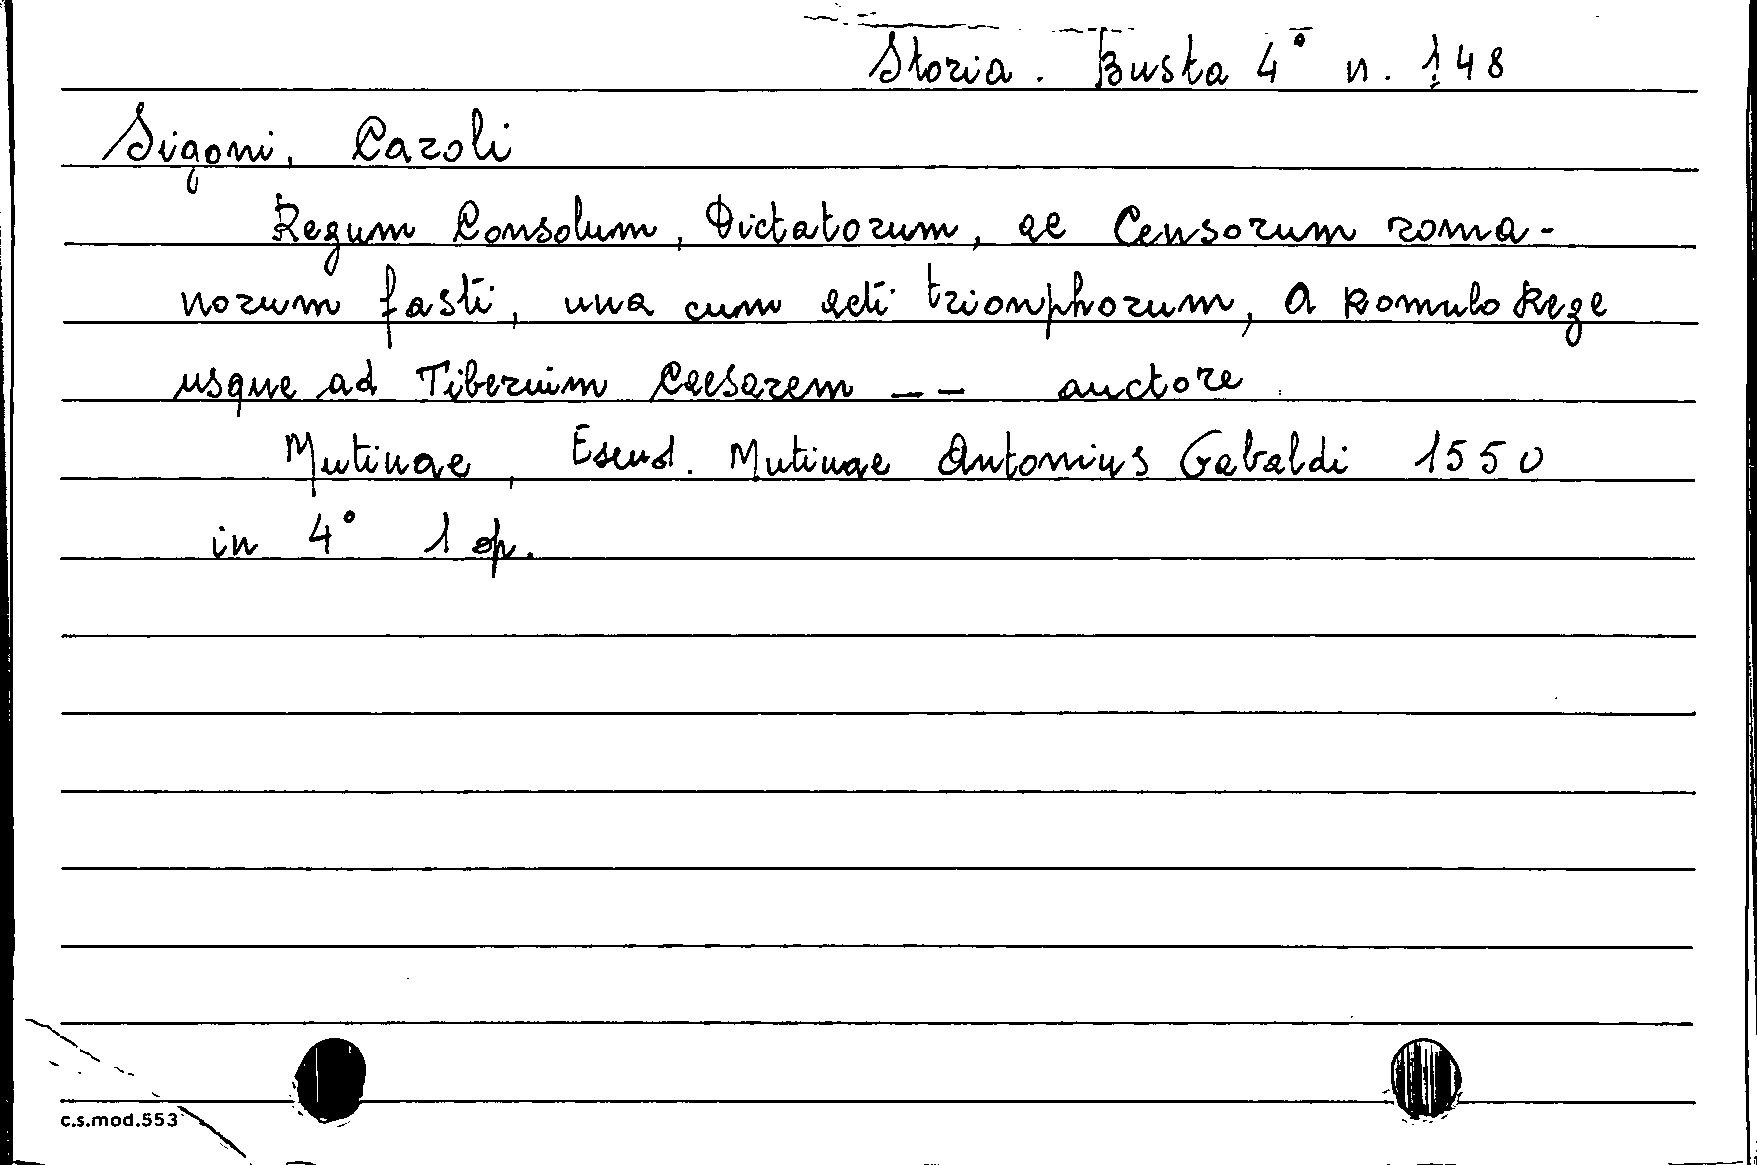 Storia. Busta 4° n. 148
Sigoni, Caroli
Regum Consolum, Dictatorum, ac Censorum roma-
norum fasti, una cum acti trionphorum, a Romulo Rege
usque ad Tiberium Caesarem -- auctore
Mutinae, Escud. Mutinae Antonius Gabaldi 1550
in 4° 1 op.
c.s.mod.553